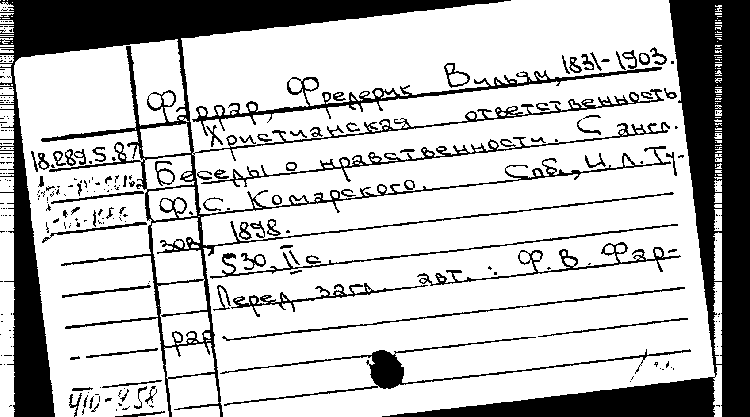 Фаррар, Фредерик Вильям, 1831-1903.
Христианская ответственность.
18.289.5.87
Беседы о нравственности. С англ.
Ф. С. Комарского. Спб., И. Л. Ту-
зов, 1898.
530, II с.
Перед загл. авт.: Ф. В. Фар-
рар.